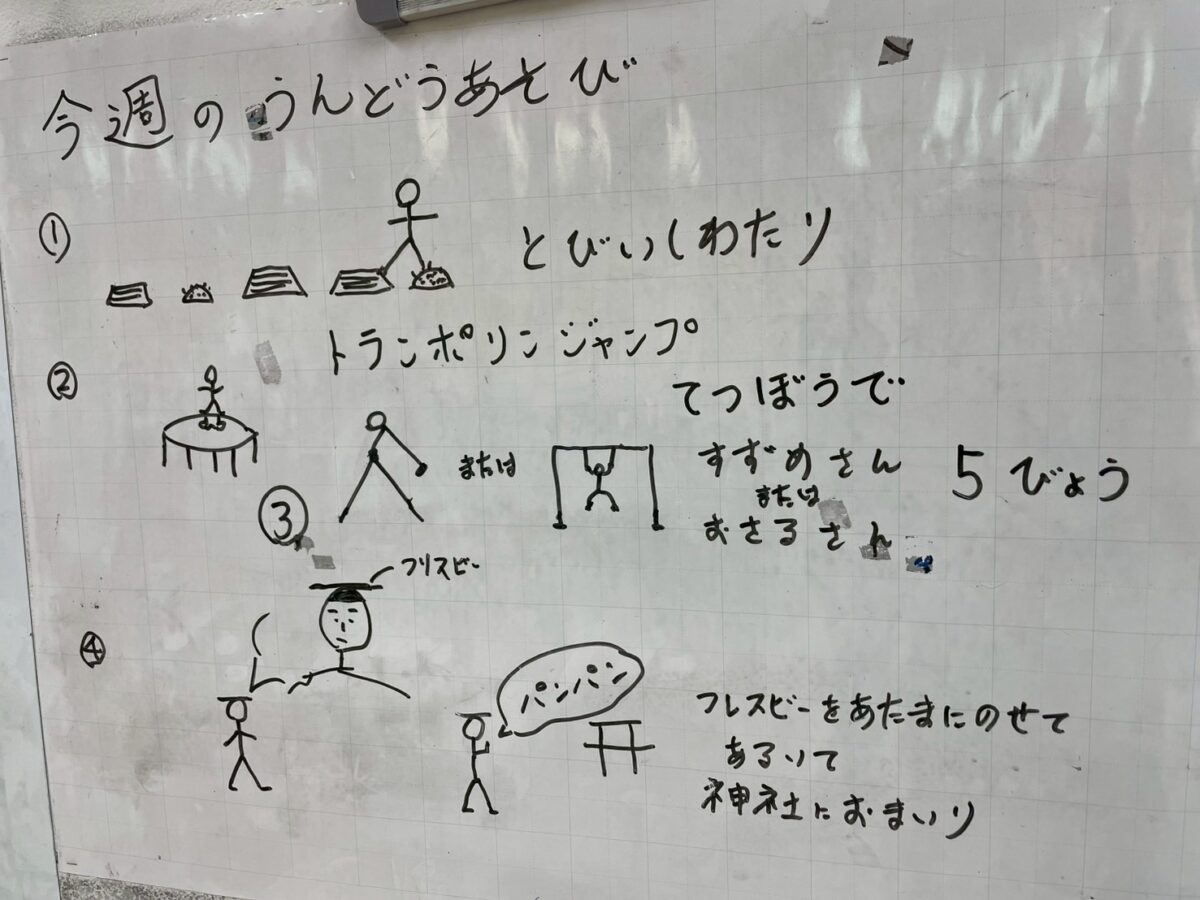 今週のうんどうあそび
① とびいしわたり
② トランポリンジャンプ
③ または
てつぼうで
すずめさん
または
おさるさん
5びょう
④
フリスビー
パンパン
フレスビーをあたまにのせて
あるいて
神社におまいり